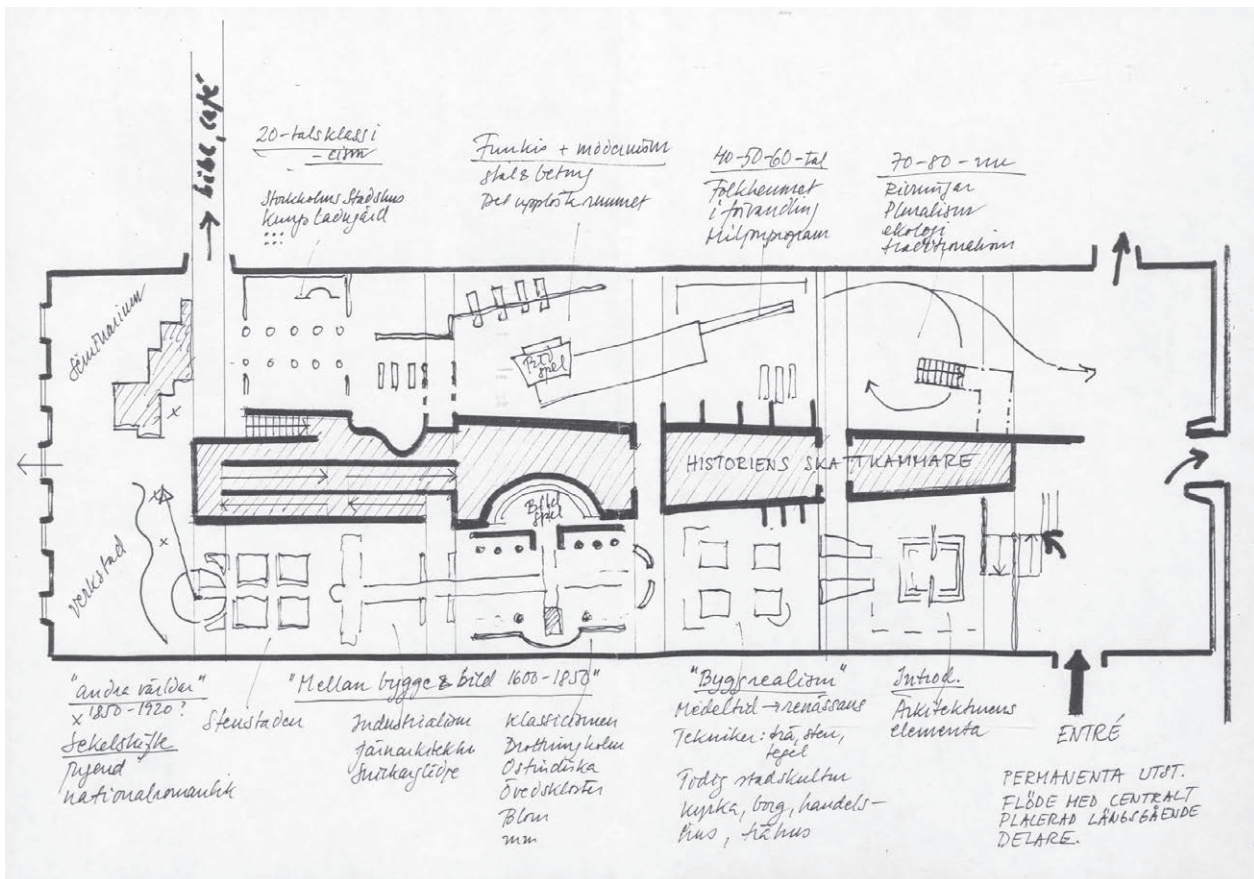 bibl, café
20-talsklassi
- cism
Stockholms Stadshus
Kungl ladugård
Funkis + modernism
stål & betong
Det upplösta rummet
40-50-60-tal
Folkhemmet
i förvandling
Miljonprogram
70-80-nu
Rivningar
Pluralism
ekologi
traditionalism
Seminarium
Bild
spel
HISTORIENS SKATTKAMMARE
Bild
spel
verkstad
"andra världar"
x 1850-1920?
Sekelskifte
Jugend
nationalromantik
Stenstaden
"Mellan bygge & bild 1600-1850"
Industrialism
Järnarkitektur
Snickarglädje
Klassicismen
Drottningholm
Ostindiska
Övedskloster
Blom
mm
"Byggrealism"
Medeltid → renässans
Tekniker: trä, sten,
tegel
stadskultur
kyrka, borg, handels-
hus, trähus
Introd.
Arkitekturens
elementa
ENTRÉ
PERMANENTA UTST.
FLÖDE MED CENTRALT
PLACERAD LÄNGSGÅENDE
DELARE.